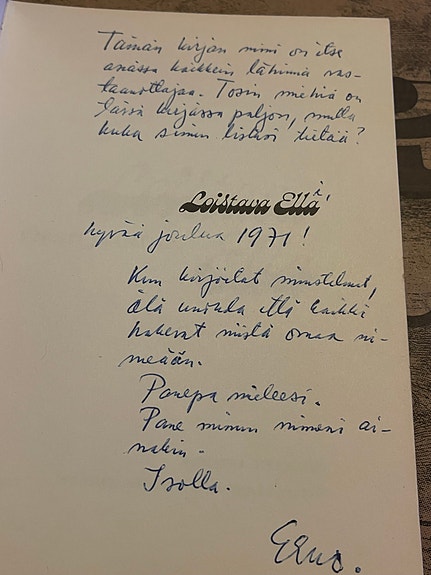 Tämän kirjan nimi on itse
asiassa kaikkein lähinnä vas-
taanottajaa. Tosin miehiä on
tässä kirjassa paljon, mutta
kuka sinun listasi tietää?
Loistava Ellä!
Hyvää joulua 1971!
Kun kirjoitat muistelmat,
älä unohda että kaikki
hakevat niistä omaa ni-
meään.
Panepa mieleesi.
Pane minun nimeni ai-
nakin.
Isolla.